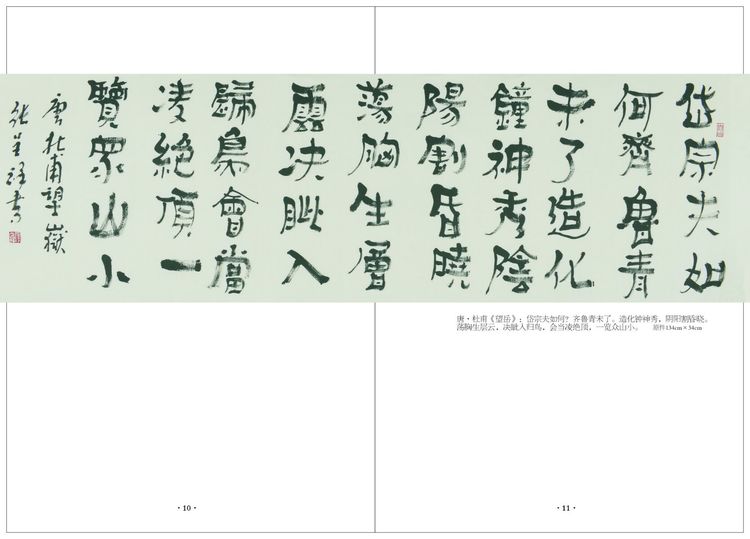 岱宗夫如
何齊魯青
未了造化
鐘神秀陰
陽割昏曉
蕩胸生層
雲决眦入
歸鳥會當
凌絕頂一
覽眾山小
唐杜甫望嶽
張書
唐·杜甫《望岳》：岱宗夫如何？齐鲁青未了。造化钟神秀，阴阳割昏晓。
荡胸生层云，决眦入归鸟，会当凌绝顶，一览众山小。 原件134cm×34cm
·10·
·11·